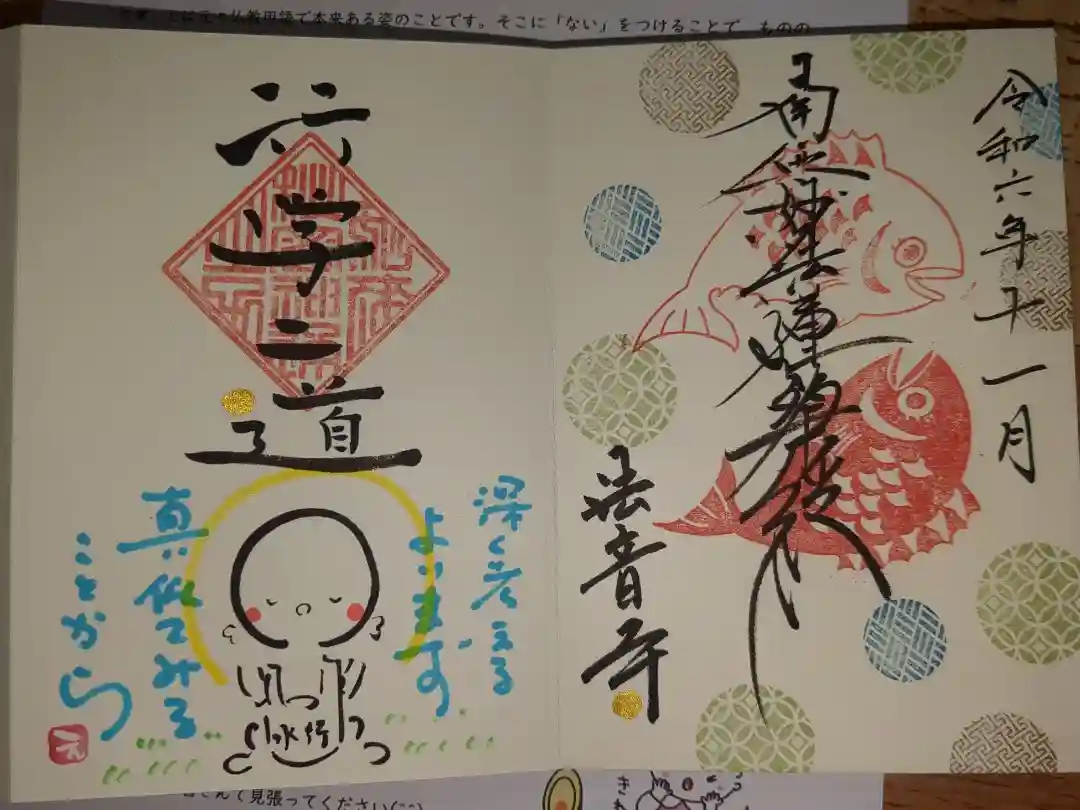 とは元々仏教用語で本来ある姿のことです。そこに「ない」をつけることで ものの
令和六年十一月
南無妙法蓮華経
法音寺
行学二道
深く考える
よりまず
真似てみる
ことから
水行
え
さんで見張ってください(^^)